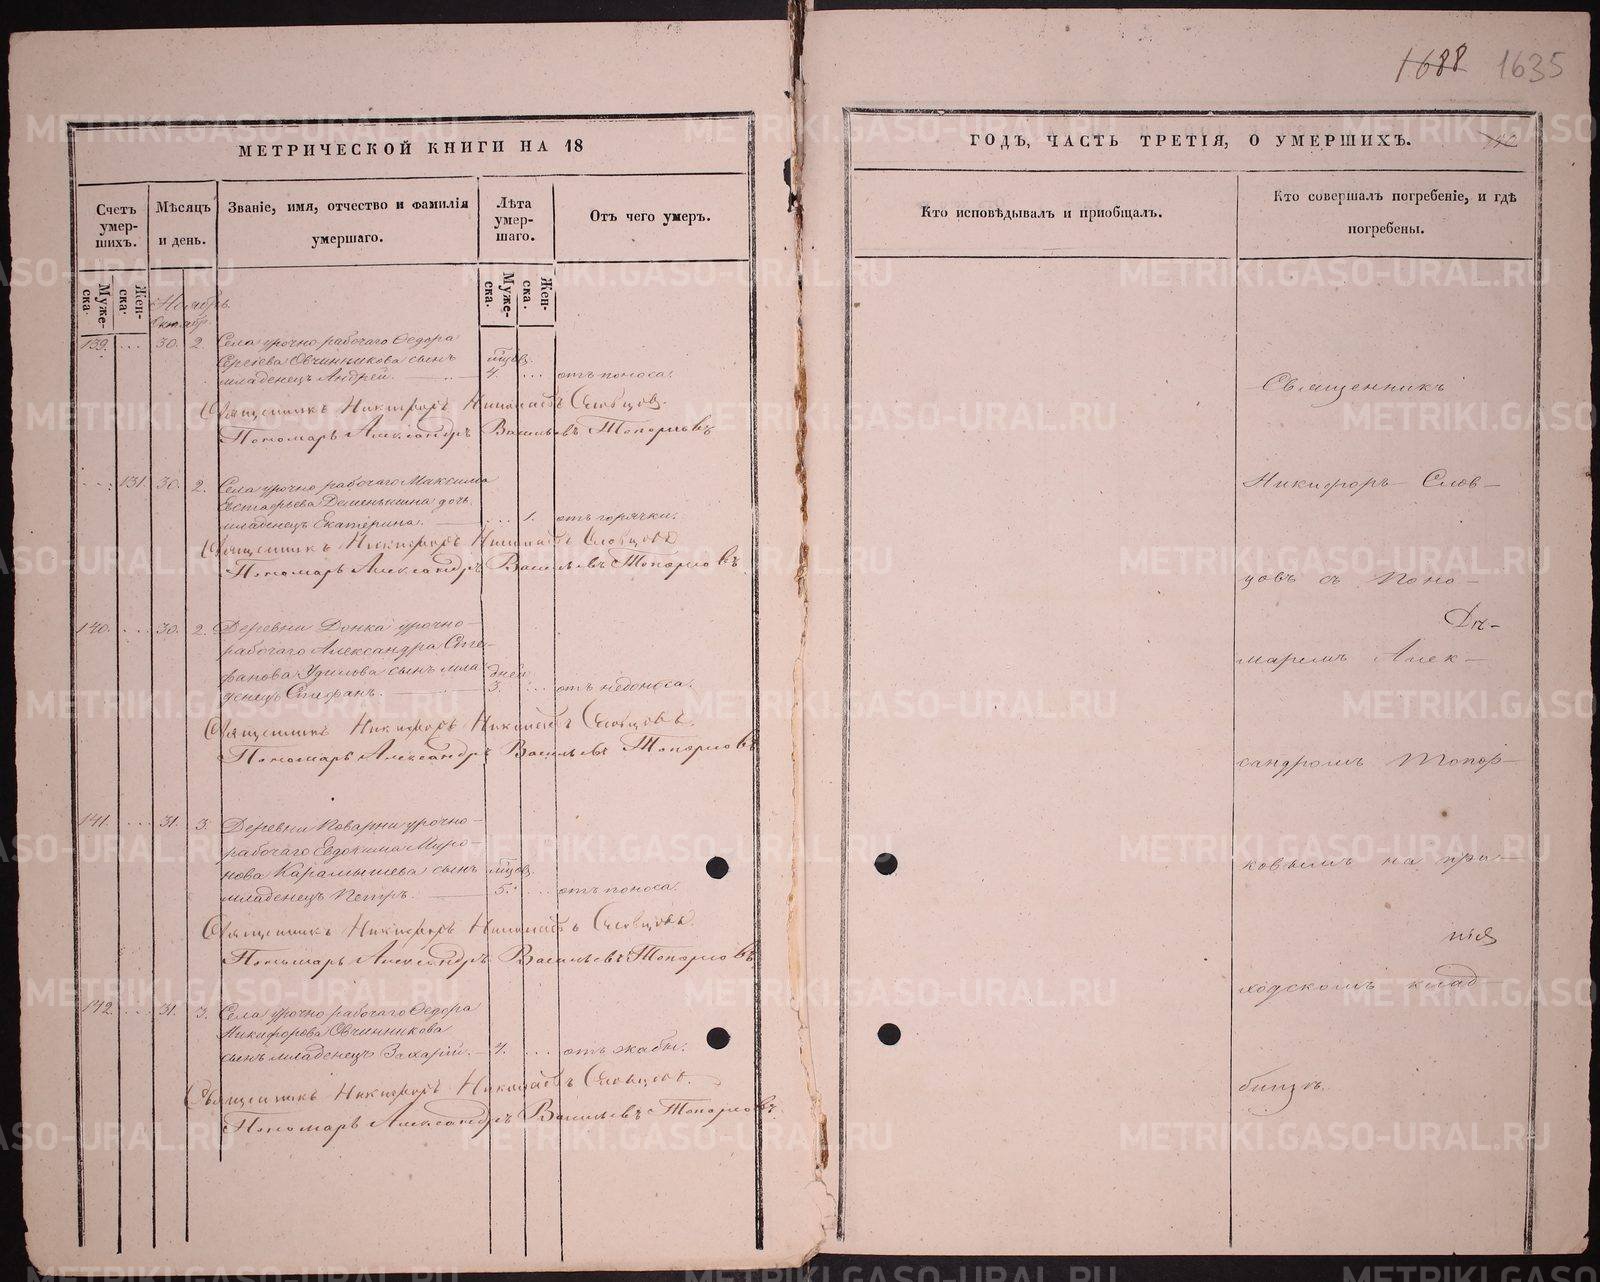 1688 1635
МЕТРИЧЕСКОЙ КНИГИ НА 18
Счетъ умер-шихъ.
Мѣсяцъ и день.
Званіе, имя, отчество и фамилія умершаго.
Лѣта умер-шаго.
Отъ чего умеръ.
Муже-ска.
Жен-ска.
Муже-ска.
Жен-ска.
Октябр. Ноябрь.
139. ... 30. 2. Села урочно рабочаго Ѳедора
Сергѣева Овчинникова сынъ мѣсяцов.
младенецъ Андрей. 4. ... отъ поноса.
Священникъ Никифоръ Николаевъ Словцовъ.
Пономарь Александръ Васильевъ Топорковъ
... 131. 30. 2. Села урочно рабочаго Максима
Евстафьева Деменьшина дочь
младенецъ Екатерина. ... 1. отъ горячки.
Священникъ Никифоръ Николаевъ Словцовъ
Пономарь Александръ Васильевъ Топорковъ.
140. ... 30. 2. Деревни Донка урочно-
рабочаго Александра Сте-
фанова Удилова сынъ мла- дней
денецъ Стефанъ. 3. ... отъ недоноса.
Священникъ Никифоръ Николаевъ Словцовъ.
Пономарь Александръ Васильевъ Топорковъ
141. ... 31. 3. Деревни Поварни урочно-
рабочаго Евдокима Миро-
нова Карамышева сынъ мѣсяцов.
младенецъ Петръ. 5. ... отъ поноса.
Священникъ Никифоръ Николаевъ Словцовъ
Пономарь Александръ Васильевъ Топорковъ.
142. ... 31. 3. Села урочно рабочаго Ѳедора
Никифорова Овчинникова
сынъ младенецъ Захарій. 4. ... отъ жабы.
Священникъ Никифоръ Николаевъ Словцовъ.
Пономарь Александръ Васильевъ Топорковъ.
ГОДЪ, ЧАСТЬ ТРЕТІЯ, О УМЕРШИХЪ.
Кто исповѣдывалъ и пріобщалъ.
Кто совершалъ погребеніе, и гдѣ погребены.
Священникъ
Никифоръ Слов-
цовъ съ Поно-
маремъ Алек-
сандромъ Топор-
ковымъ на при-
ходскомъ клад-
бищѣ.
METRIKI.GASO-URAL.RU